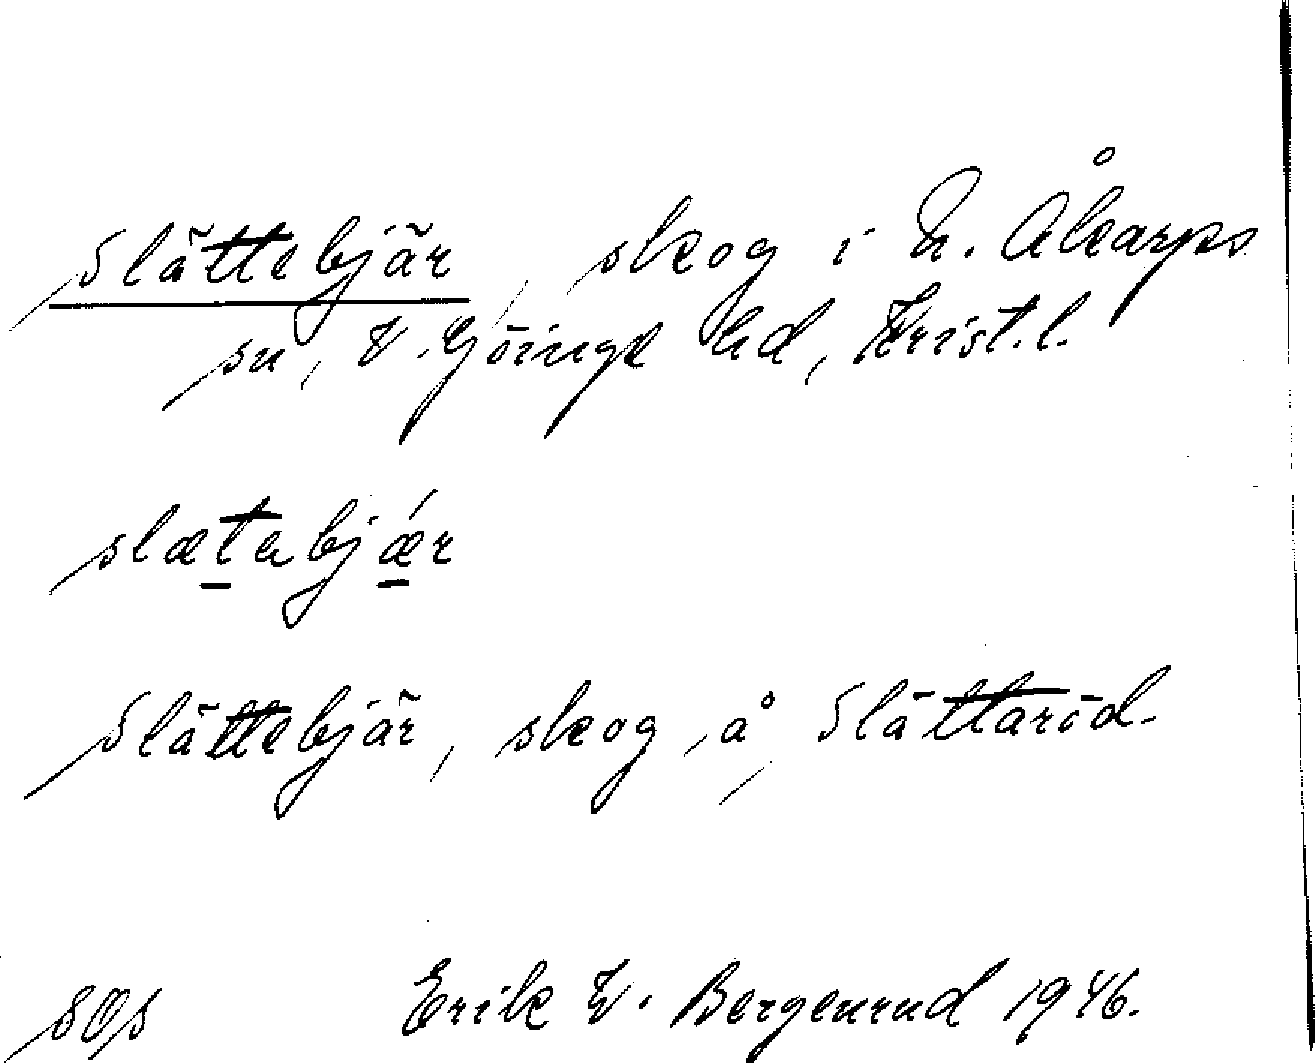 Slättebjär, skog i N. Åkarps
sn, V. Göinge hd, Krist. l.
slætabjǽr
Slättebjär, skog å Slättaröd.
Erik W. Bergenrud 1946.